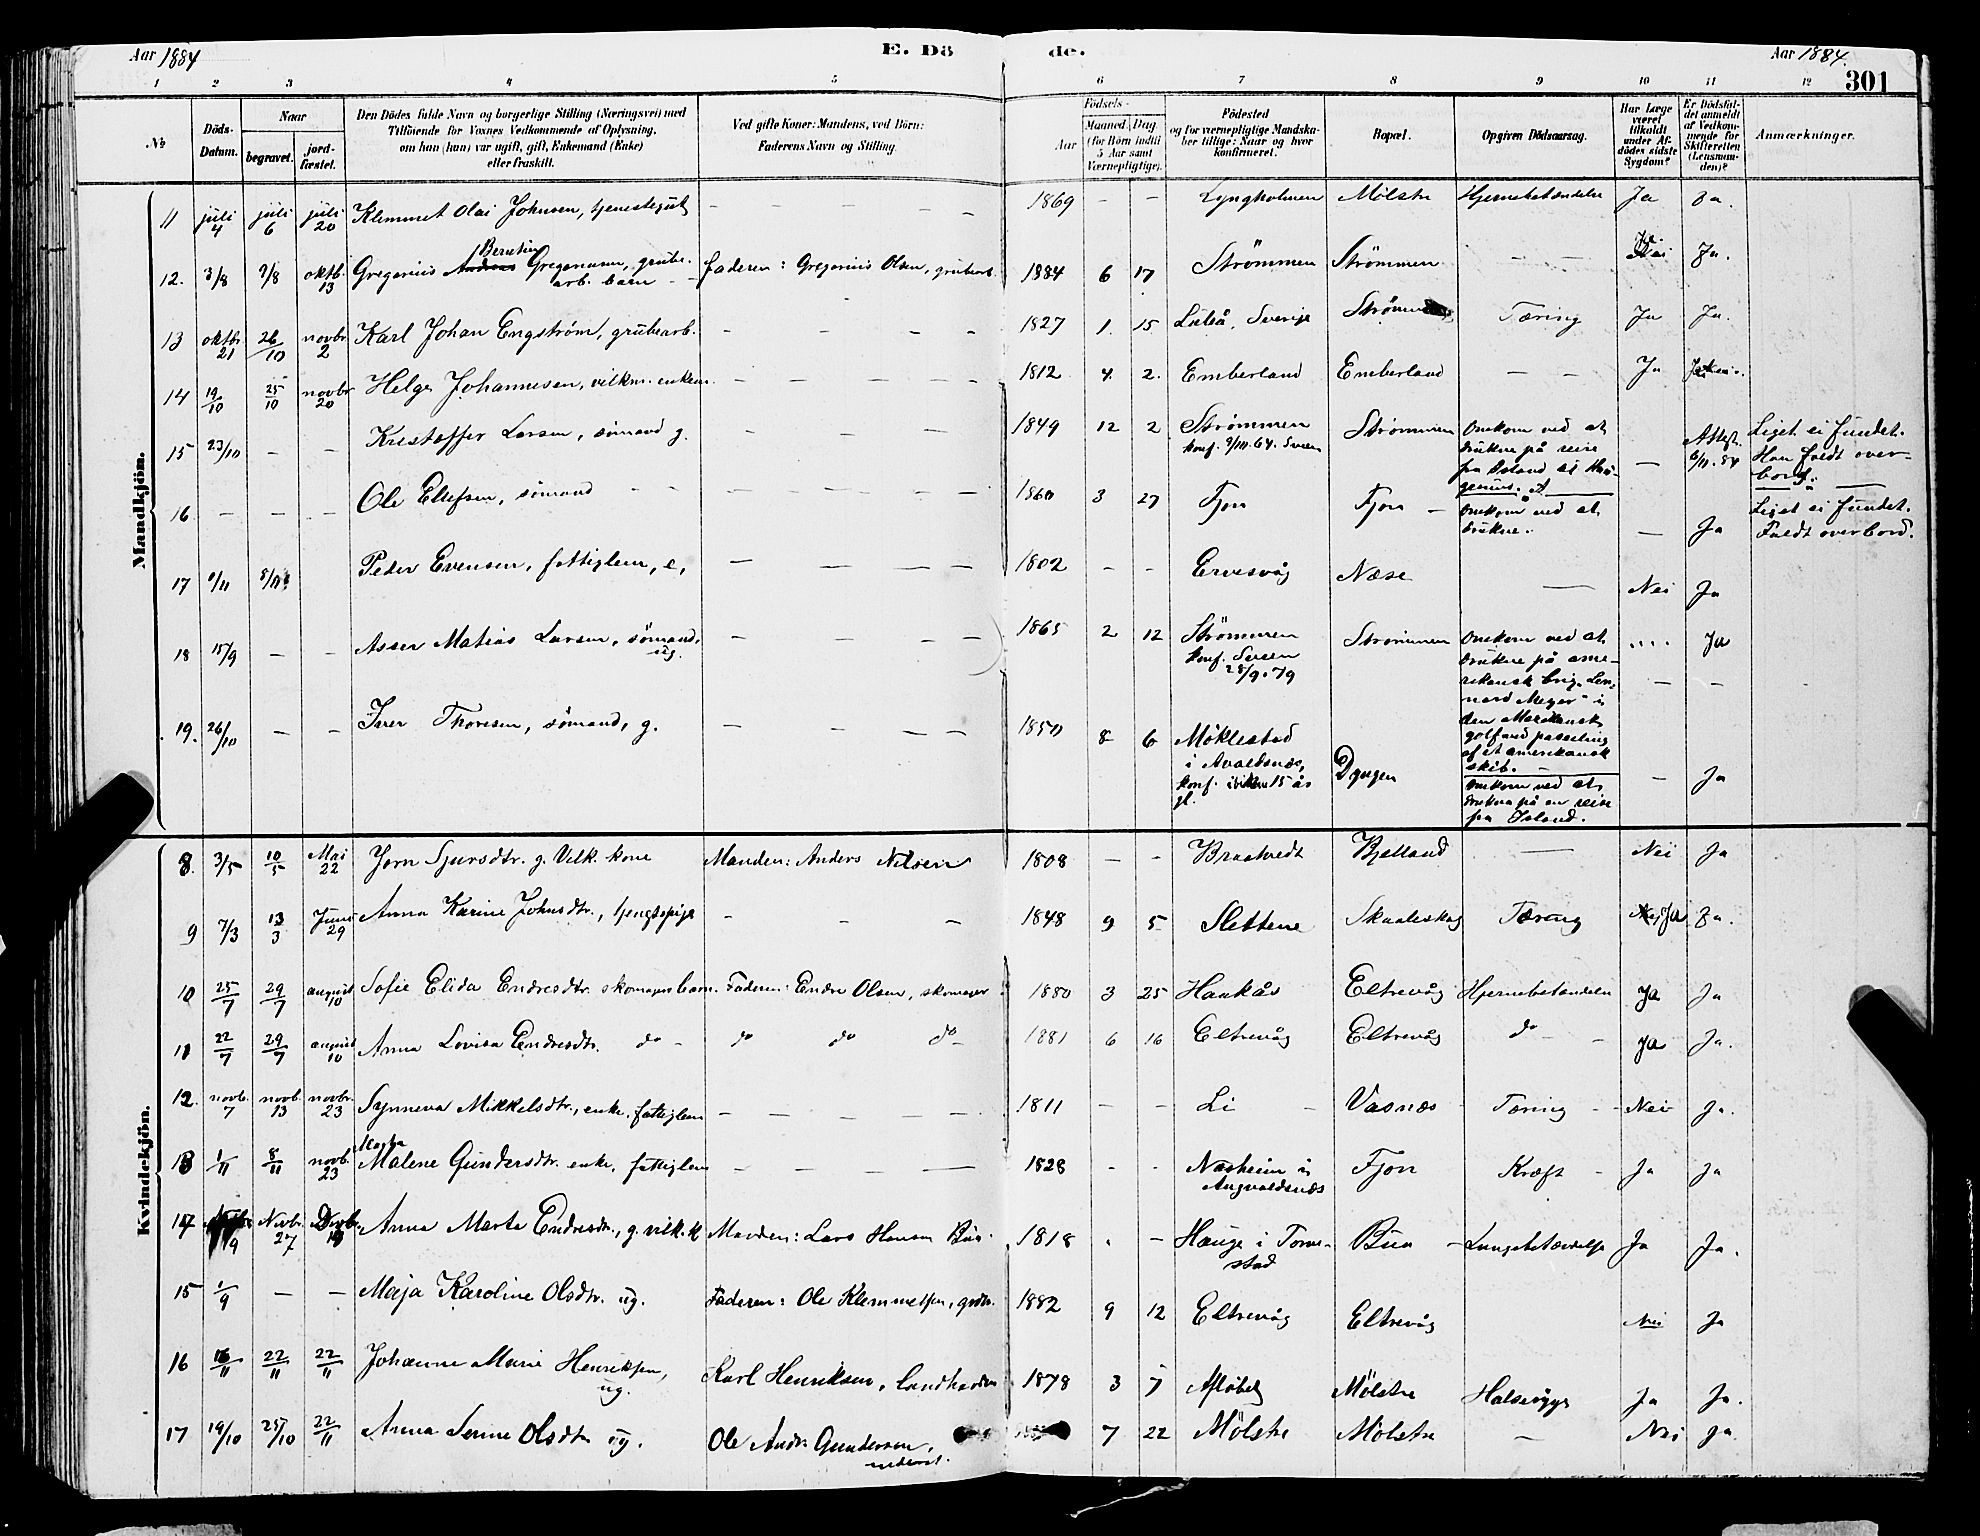 Aar 1884 E. Dö de. Aar 1884. 301
1 2 3 4 5 6 7 8 9 10 11 12
No Döds-Datum. Naar begravet. jordfæstet. Den Dödes fulde Navn og borgerlige Stilling (Næringsvei) med Tilföiende for Voxnes Vedkommende af Oplysning, om han (hun) var ugift, gift, Enkemand (Enke) eller fraskilt. Ved gifte Koner: Mandens, ved Börn: Faderens Navn og Stilling. Födsels- Aar Maaned. Dag (for Börn indtil 5 Aar samt Værnepligtige). Födested og for værnepligtige Mandskaber tillige: Naar og hvor konfirmeret. Bopæl. Opgiven Dödsaarsag. Har Læge været tilkaldt under Afdödes sidste Sygdom? Er Dödsfaldet anmeldt af Vedkommende for Skifteretten (Lensmanden)? Anmærkninger.
Mandkjön.
11 juli 4 juli 6 juli 20 Klemmet Olai Johnsen, tjenestegut – – – – 1869 – – Lyngholmen Mølstre Hjernebetændelse Ja Ja.
12. 3/8 9/8 oktb. 13 Gregorius Andreas Berntin Gregoriusen, grube- arb. barn – faderen: Gregorius Olsen, grubearb. 1884 6 17 Strömmen Strömmen – – Nei Ja. Ja.
13 oktbr 21 26/10 novbr 2 Karl Johan Engström, grubearb. – – – – 1827 1. 15 Luleå, Sverije Tæring Ja Ja.
14 19/10 25/10 novbr 20 Helge Johannesen, vilkm. enkem. – – – – – 1812 4 2. Emberland Emberland – – Ja
15 23/10 – – Kristoffer Larsen, sömand g. – – – – 1849 12 2 Strømmen Strömmen Omkom ved at
konf. 64. Sveen drukne på reise fra Island – Attest. 6/11.84 Liget ei fundet. Han faldt overbord.
16. – – – Ole Elefsen, sömand – – – – – – 1860 3 27 Fjon Fjon – Omkom ved at drukne. – Ja Liget ei fundet. Faldt overbord.
17 1/11 8/11 Peder Evensen, fattiglem, e, – – – – 1802 – – Ervesvåg Næse – Nei Ja
18 15/9 – – Asser Matias Larsen, sömand, ug. – – – – 1865 2 12 Strömmen konf. Sveen 28/9.79 Strömmen Omkom ved at drukne på amerikansk brig „Lennard Meyer" i den golf ved passering af et amerikansk skib. – .... Ja
19. 26/10 – – Iver Thoresen, sömand, g. – – – – 1850 8 6 Møklestad i Avaldsnæs, konf. 15 år gl. Omkom ved at drukne på en reise fra Island. – Ja
Kvindekjön.
8. 3/5 10/5 Mai 22 Jorn Sjursdtr. g. Vilk. kone Manden: Anders Nilsen 1808 – – Braatvedt Bjelland – Nei Ja
9 7/3 13/3 Juni 29 Anna Karine Johnsdtr., – – – 1848 9 5 Slettene Skaaleskog Tæring Nei Ja Ja.
10 25/7 29/7 august 10 Sofie Elida Endresdtr. skomager barn. Faderen: Endre Olsen, skomager 1880 3 25 Haakås Eltrevåg Hjernebetændelse Ja Ja
11 22/7 29/7 august 10 Anna Lovisa Endresdtr. do – do do do – 1881 6 16 Eltrevåg Eltrevåg do – – Ja Ja.
12. novb. 7 novb. 13 novbr. 23 Synneva Mikkelsdtr., enke, fattiglem – – – – – 1811 – – Li – Vasnæs – Tæring – – Nei Ja.
13 1/11 8/11 novb. 23 Malene Gundersdtr. enke, fattiglem – – – – – 1828 – – Næsheim i Augvaldsnæs Fjon Kræft – Ja Ja
14 19 Novbr. 27 Anna Marta Endresdtr., g. vilk. k Manden: Lars Hansen Bua. 1818 – – Hauge i Torvestad Bua – Lungebetændelse Ja Ja.
15 1/9 – – Maja Karoline Olsdtr. ug. Faderen: Ole Klemmetsen, grdbr. 1882 9 12 Eltrevåg Eltrevåg Nei Ja
16 16/11 22/11 22/11 Johanne Marie Henriksen, ug. Karl Henriksen, landhandler 1878 3 7 Mölstre Halssyge Ja Ja.
17 19/10 25/10 22/11 Anna Serine Olsdtr ug. Ole Andr. Gundersen, 7 22 Mölstre Mölstre – Nei Ja.